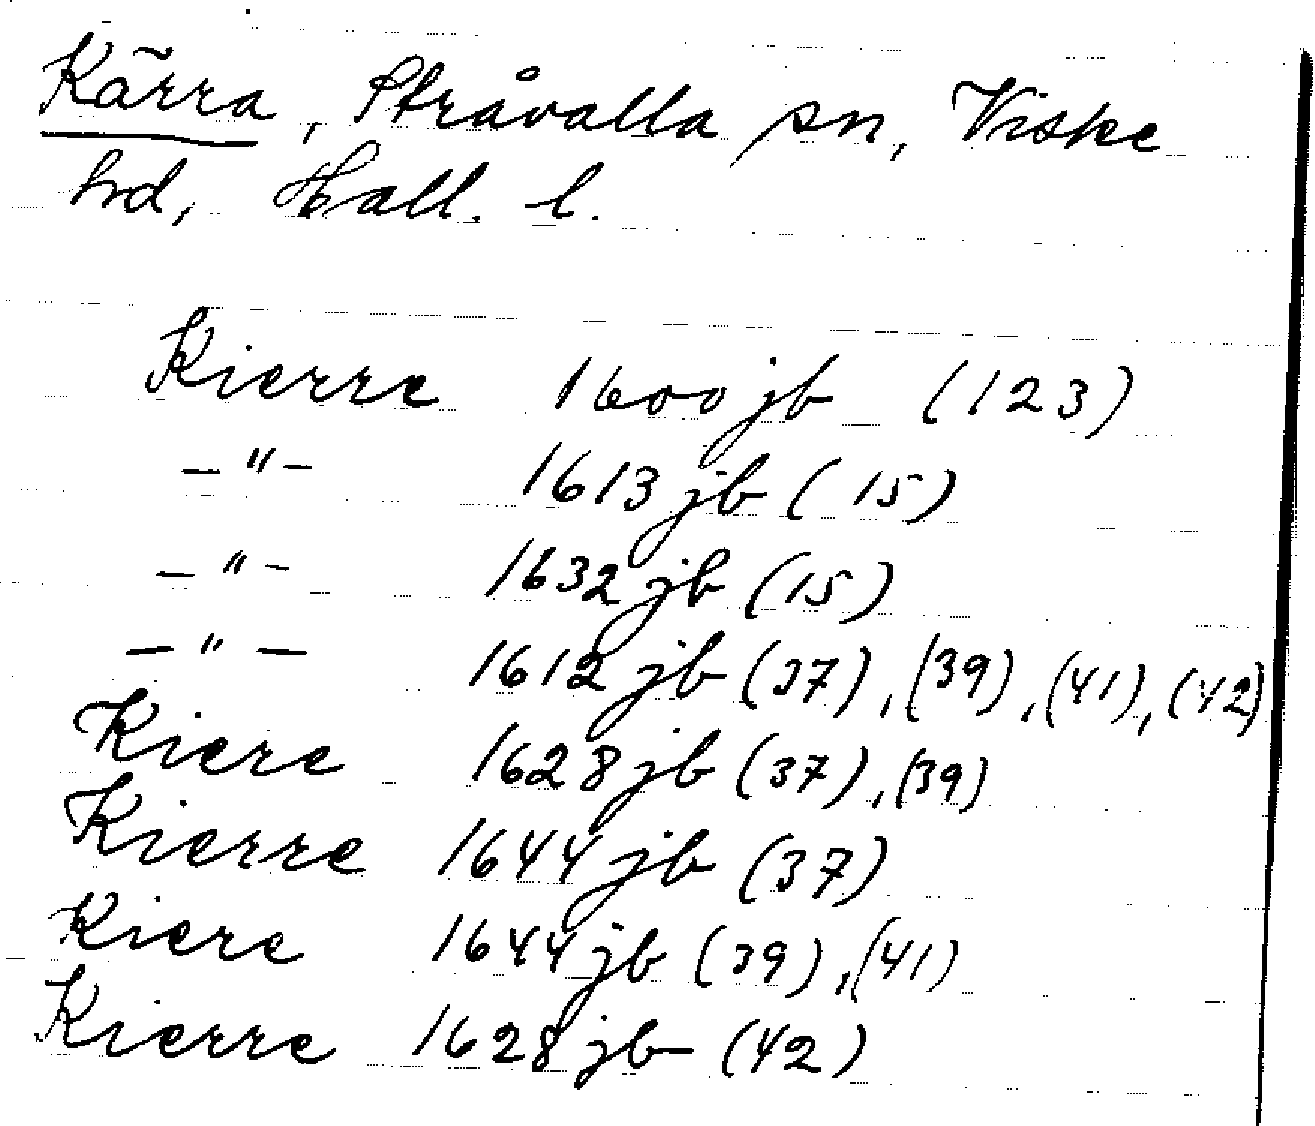 Kärra, Stråvalla sn, Viske
hd, Hall. l.
Kierre 1600 jb (123)
—"— 1613 jb (15)
—"— 1632 jb (15)
—"— 1612 jb (37), (39), (41), (42)
Kiere 1628 jb (37), (39)
Kierre 1644 jb (37)
Kiere 1644 jb (39), (41)
Kierre 1628 jb (42)